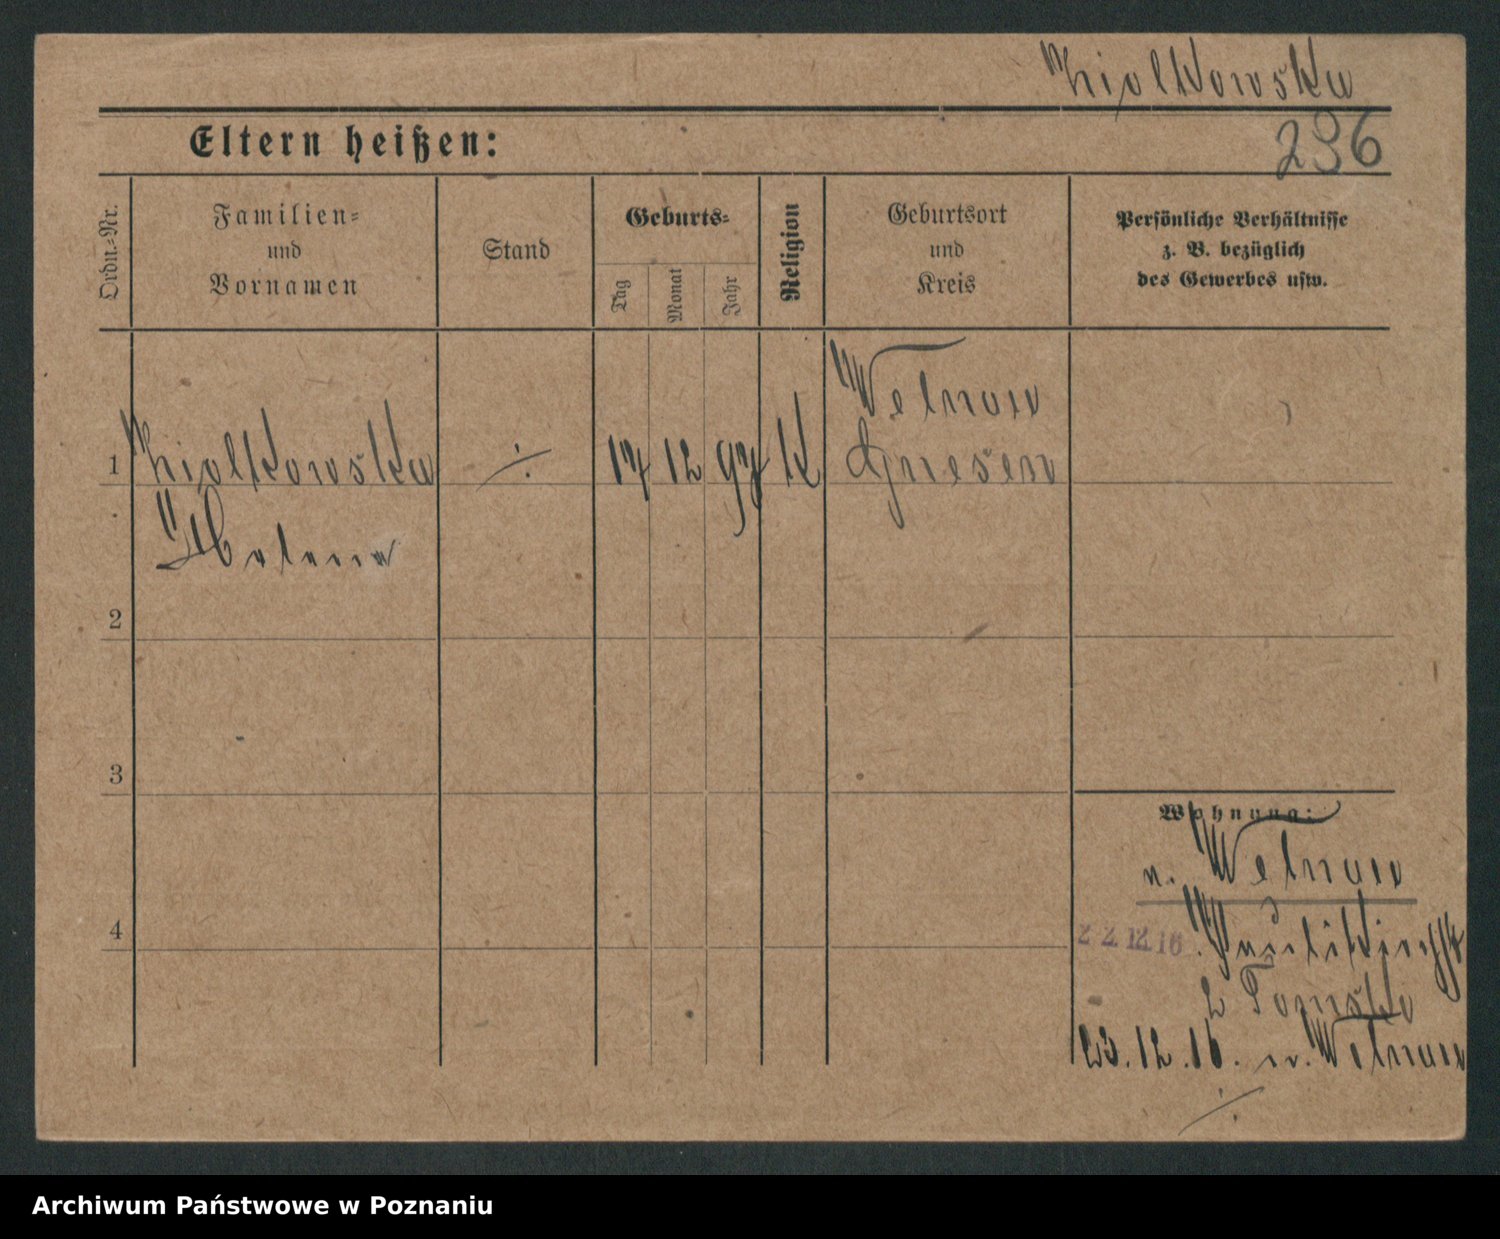 Ziolkowska
Eltern heißen:
236
Ordn.-Nr.
Familien-
und
Vornamen
Stand
Geburts-
Tag
Monat
Jahr
Religion
Geburtsort
und
Kreis
Persönliche Verhältnisse
z. B. bezüglich
des Gewerbes usw.
1
Ziolkowska
Helene
÷
17
12
97
K
Welnau
Gnesen
2
3
4
Wohnung:
n. Welnau
22.12.16
b Tomski
23.12.16. n. Welnau
÷
Archiwum Państwowe w Poznaniu